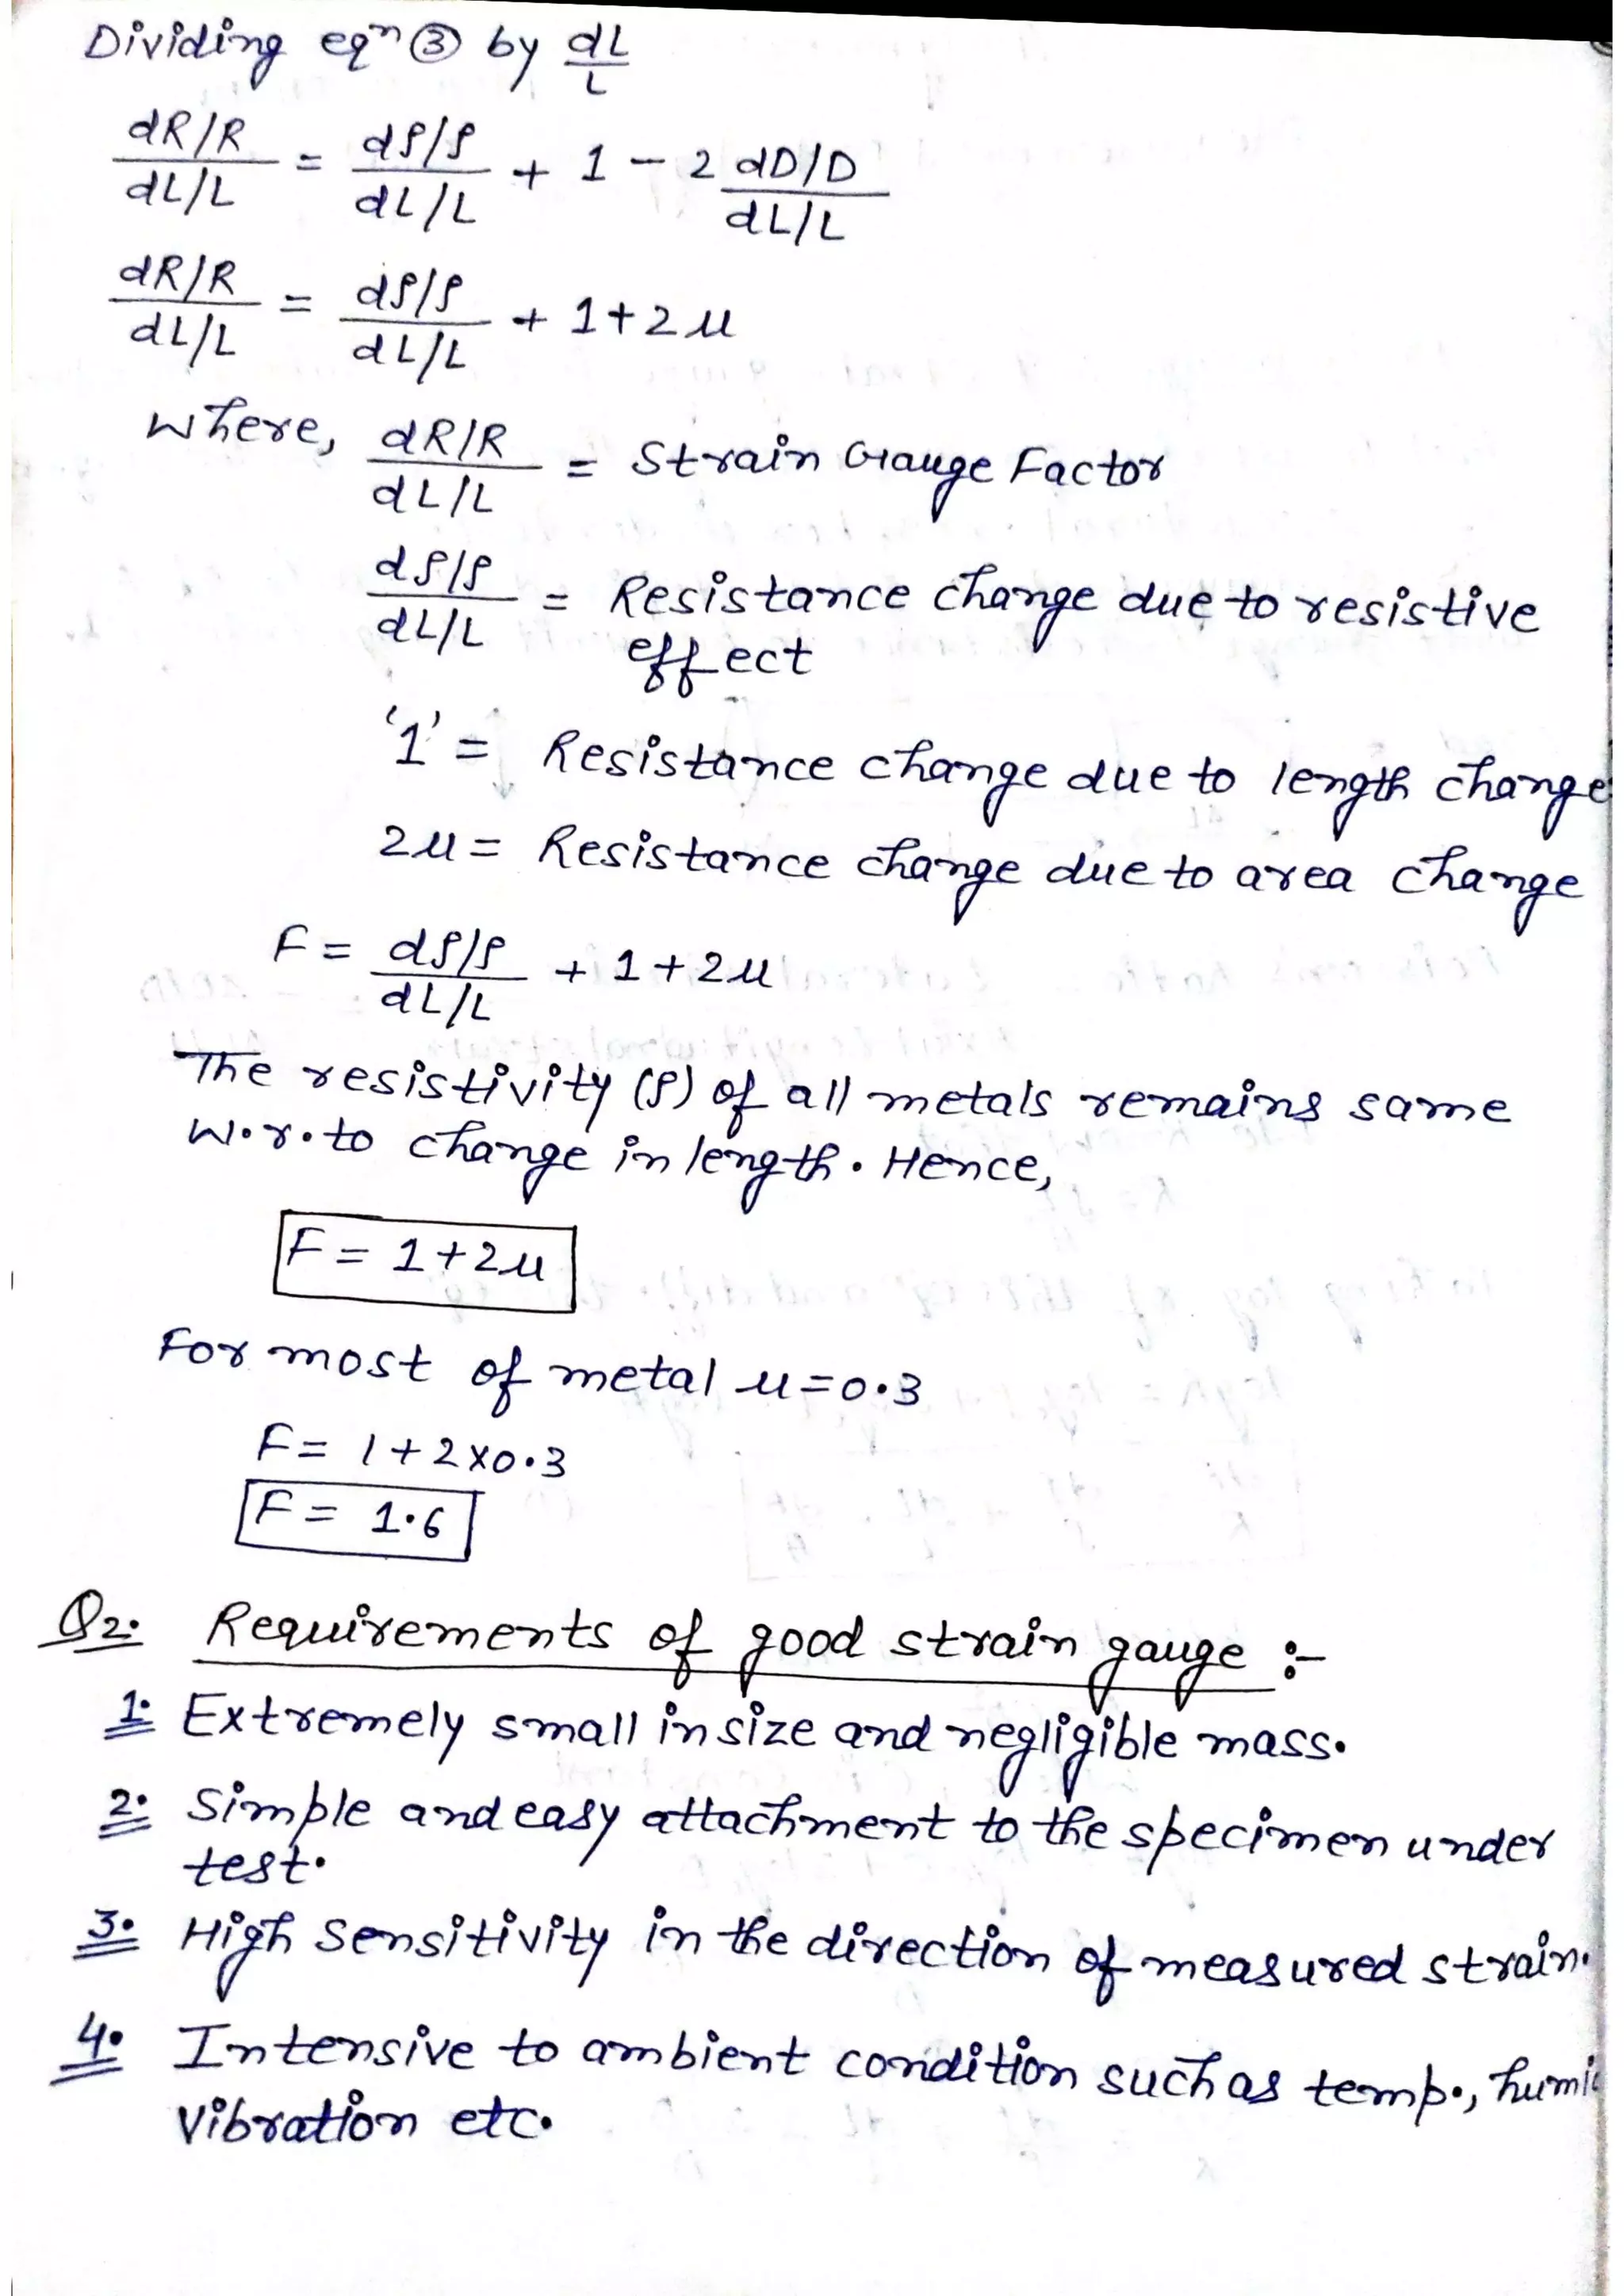 Dividing eqⁿ ③ by dL/L
(dR/R)/(dL/L) = (dρ/ρ)/(dL/L) + 1 - 2 (dD/D)/(dL/L)
(dR/R)/(dL/L) = (dρ/ρ)/(dL/L) + 1+2μ
where, (dR/R)/(dL/L) = Strain Gauge Factor
(dρ/ρ)/(dL/L) = Resistance change due to resistive
effect
'1' = Resistance change due to length change
2μ = Resistance change due to area change
F = (dρ/ρ)/(dL/L) + 1+2μ
The resistivity (ρ) of all metals remains same
w.r.to change in length. Hence,
F = 1+2μ
For most of metal μ=0.3
F= 1+2x0.3
F= 1.6
Q2. Requirements of good strain gauge :-
1. Extremely small in size and negligible mass.
2. Simple and easy attachment to the specimen under
test.
3. High sensitivity in the direction of measured strain.
4. Intensive to ambient condition such as temp.,
vibration etc.